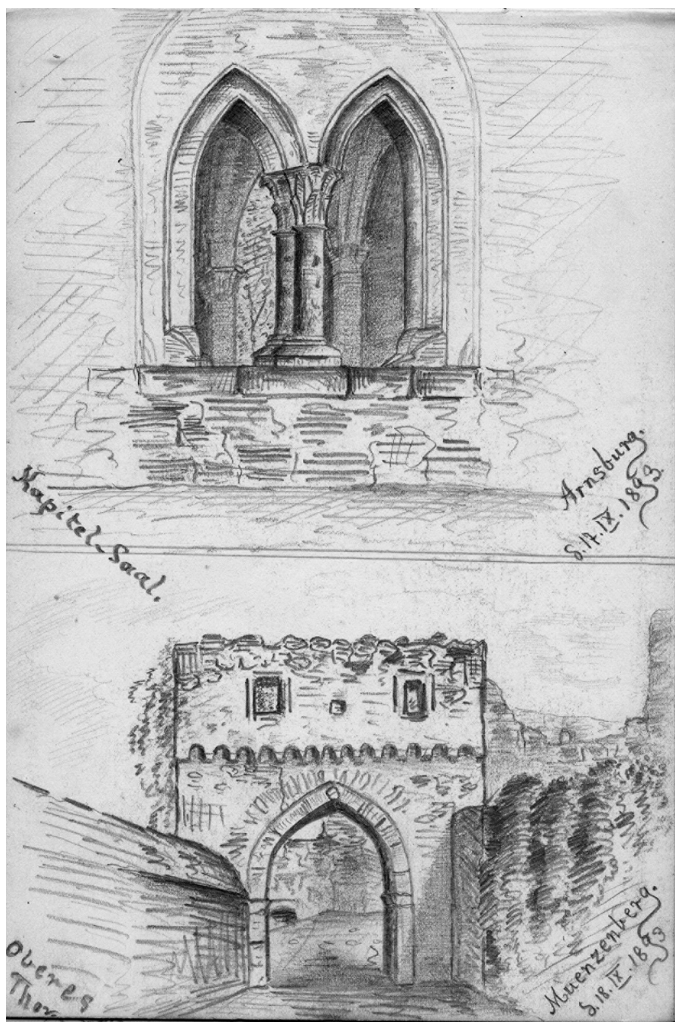 Kapitel-Saal.
Arnsburg.
d. 17. IX. 1893.
Oberes
Thor
Muenzenberg.
d. 18. IX. 1893